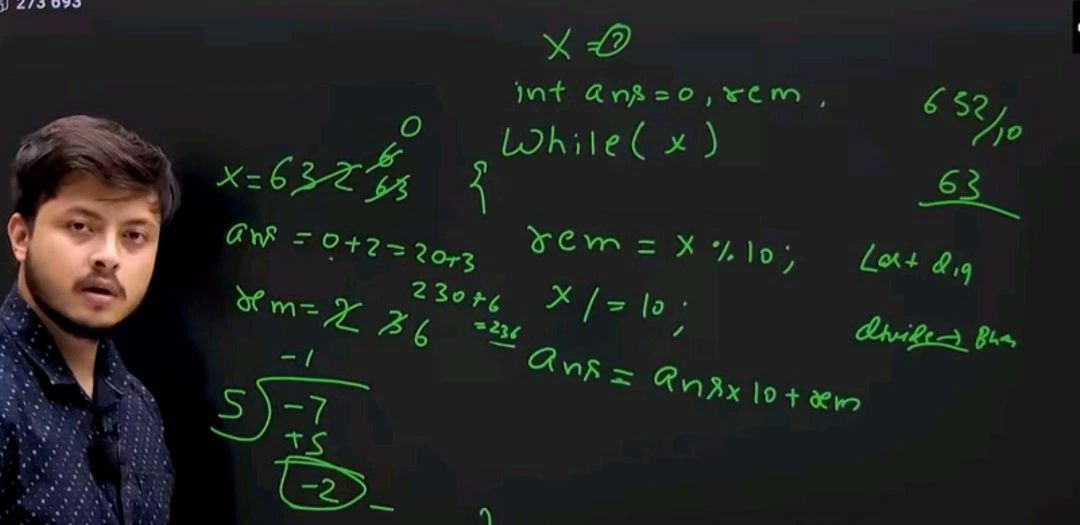 273 693
X = 0
int ans = 0, rem,
While ( x )
{
rem = x % 10;
x /= 10;
ans = ans x 10 + rem
0
x = 632 63 6
ans = 0+2 = 20+3
230+6
= 236
rem = 2 3 6
-1
5 -7
+5
-2
632/10
63
Last dig
divide →